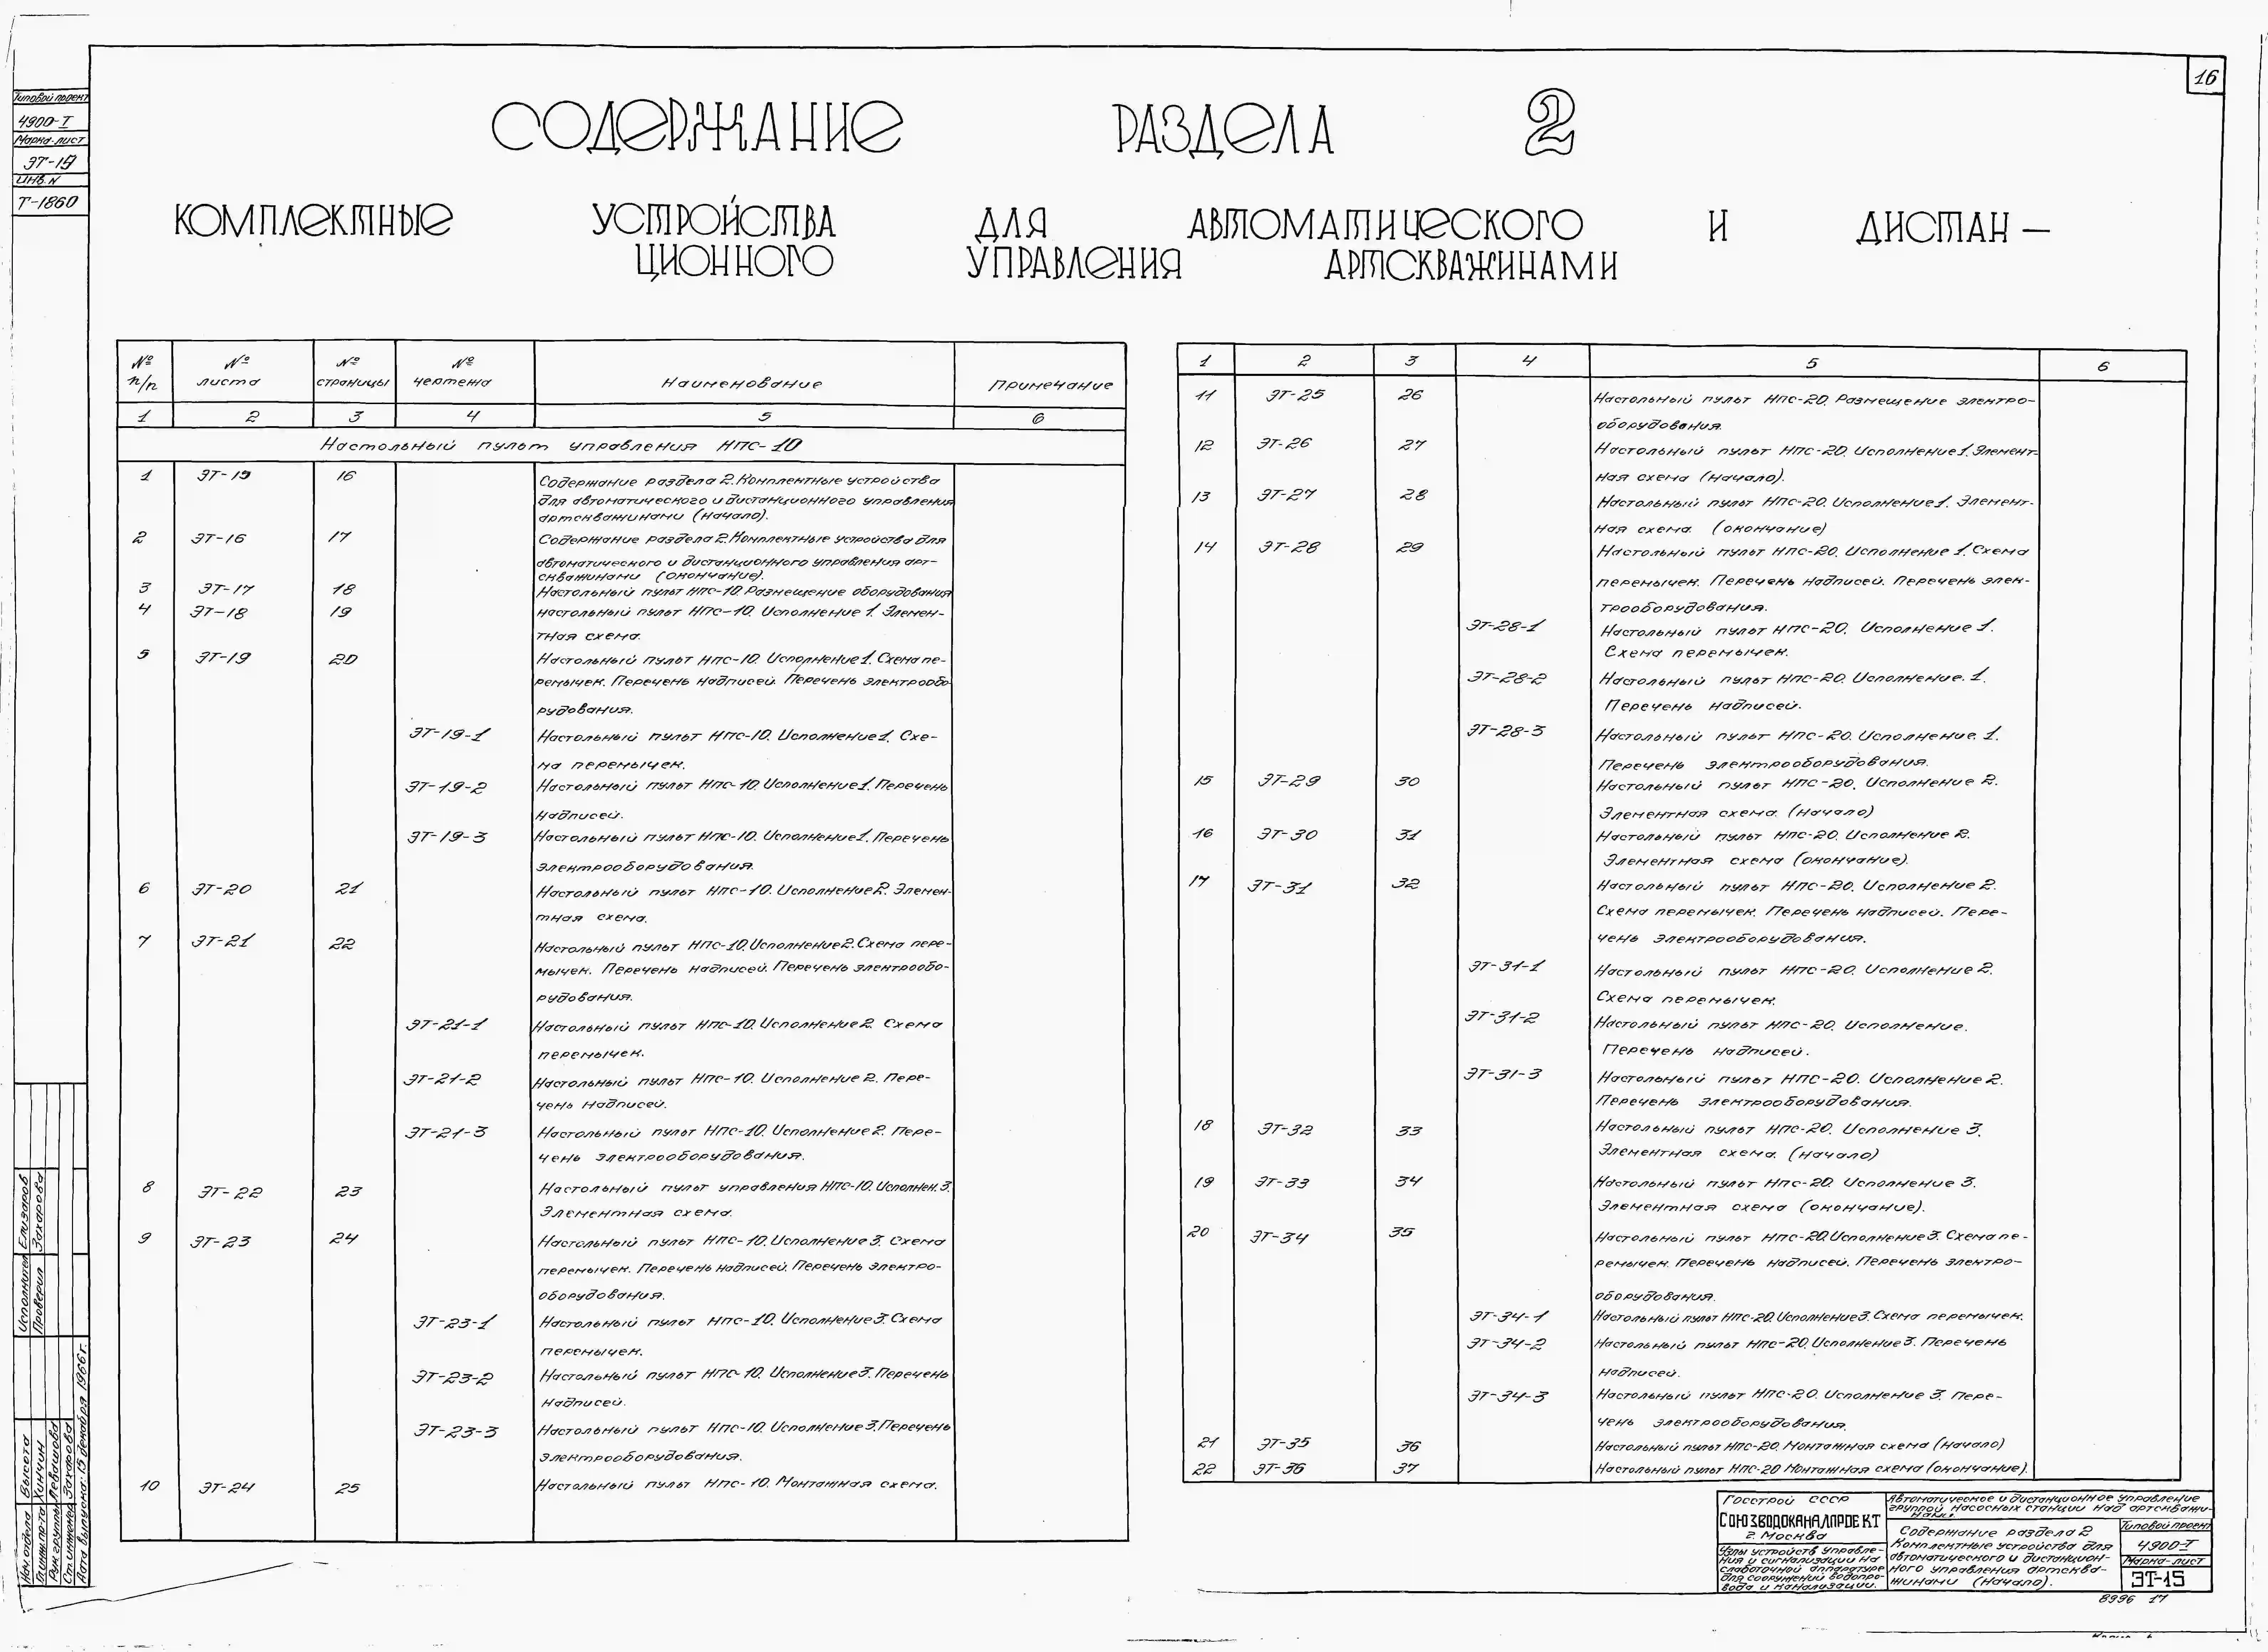 16
Типовой проект
4900-I
Марка-лист
ЭТ-15
Инв. N
Т-1860
СОДЕРЖАНИЕ РАЗДЕЛА 2
КОМПЛЕКТНЫЕ УСТРОЙСТВА ДЛЯ АВТОМАТИЧЕСКОГО И ДИСТАН-
ЦИОННОГО УПРАВЛЕНИЯ АРТСКВАЖИНАМИ
№ п/п № листа № страницы № чертежа Наименование Примечание
1 2 3 4 5 6
Настольный пульт управления НПС-10
1 ЭТ-15 16 Содержание раздела 2. Комплектные устройства
для автоматического и дистанционного управления
артскважинами (начало).
2 ЭТ-16 17 Содержание раздела 2. Комплектные устройства для
автоматического и дистанционного управления арт-
скважинами (окончание).
3 ЭТ-17 18 Настольный пульт НПС-10. Размещение оборудования
4 ЭТ-18 19 Настольный пульт НПС-10. Исполнение 1. Элемен-
тная схема.
5 ЭТ-19 20 Настольный пульт НПС-10. Исполнение 1. Схема пе-
ремычек. Перечень надписей. Перечень электрообо-
рудования.
ЭТ-19-1 Настольный пульт НПС-10. Исполнение 1. Схе-
ма перемычек.
ЭТ-19-2 Настольный пульт НПС-10. Исполнение 1. Перечень
надписей.
ЭТ-19-3 Настольный пульт НПС-10. Исполнение 1. Перечень
электрооборудования.
6 ЭТ-20 21 Настольный пульт НПС-10. Исполнение 2. Элемен-
тная схема.
7 ЭТ-21 22 Настольный пульт НПС-10. Исполнение 2. Схема пере-
мычек. Перечень надписей. Перечень электрообо-
рудования.
ЭТ-21-1 Настольный пульт НПС-10. Исполнение 2. Схема
перемычек.
ЭТ-21-2 Настольный пульт НПС-10. Исполнение 2. Пере-
чень надписей.
ЭТ-21-3 Настольный пульт НПС-10. Исполнение 2. Пере-
чень электрооборудования.
8 ЭТ-22 23 Настольный пульт управления НПС-10. Исполнен. 3.
Элементная схема.
9 ЭТ-23 24 Настольный пульт НПС-10. Исполнение 3. Схема
перемычек. Перечень надписей. Перечень электро-
оборудования.
ЭТ-23-1 Настольный пульт НПС-10. Исполнение 3. Схема
перемычек.
ЭТ-23-2 Настольный пульт НПС-10. Исполнение 3. Перечень
надписей.
ЭТ-23-3 Настольный пульт НПС-10. Исполнение 3. Перечень
электрооборудования.
10 ЭТ-24 25 Настольный пульт НПС-10. Монтажная схема.
1 2 3 4 5 6
11 ЭТ-25 26 Настольный пульт НПС-20. Размещение электро-
оборудования.
12 ЭТ-26 27 Настольный пульт НПС-20. Исполнение 1. Элемент-
ная схема (начало).
13 ЭТ-27 28 Настольный пульт НПС-20. Исполнение 1. Элемент-
ная схема. (окончание)
14 ЭТ-28 29 Настольный пульт НПС-20. Исполнение 1. Схема
перемычек. Перечень надписей. Перечень элек-
трооборудования.
ЭТ-28-1 Настольный пульт НПС-20. Исполнение 1.
Схема перемычек.
ЭТ-28-2 Настольный пульт НПС-20. Исполнение. 1.
Перечень надписей.
ЭТ-28-3 Настольный пульт НПС-20. Исполнение. 1.
Перечень электрооборудования.
15 ЭТ-29 30 Настольный пульт НПС-20. Исполнение 2.
Элементная схема. (начало)
16 ЭТ-30 31 Настольный пульт НПС-20. Исполнение 2.
Элементная схема (окончание).
17 ЭТ-31 32 Настольный пульт НПС-20. Исполнение 2.
Схема перемычек. Перечень надписей. Пере-
чень электрооборудования.
ЭТ-31-1 Настольный пульт НПС-20. Исполнение 2.
Схема перемычек.
ЭТ-31-2 Настольный пульт НПС-20. Исполнение.
Перечень надписей.
ЭТ-31-3 Настольный пульт НПС-20. Исполнение 2.
Перечень электрооборудования.
18 ЭТ-32 33 Настольный пульт НПС-20. Исполнение 3.
Элементная схема. (начало)
19 ЭТ-33 34 Настольный пульт НПС-20. Исполнение 3.
Элементная схема (окончание).
20 ЭТ-34 35 Настольный пульт НПС-20. Исполнение 3. Схема пе-
ремычек. Перечень надписей. Перечень электро-
оборудования.
ЭТ-34-1 Настольный пульт НПС-20. Исполнение 3. Схема перемычек.
ЭТ-34-2 Настольный пульт НПС-20. Исполнение 3. Перечень
надписей.
ЭТ-34-3 Настольный пульт НПС-20. Исполнение 3. Пере-
чень электрооборудования.
21 ЭТ-35 36 Настольный пульт НПС-20. Монтажная схема (начало)
22 ЭТ-36 37 Настольный пульт НПС-20 Монтажная схема (окончание).
Исполнител Елизаров
Проверил Захарова
Нач. отдела Высота
Гл. инж. пр-та Хинчин
Рук. группы Левашова
Ст. инженер Захарова
Дата выпуска: 15 декабря 1966 г.
Госстрой СССР
СОЮЗВОДОКАНАЛПРОЕКТ
г. Москва
Узлы устройств управле-
ния и сигнализации на
слаботочной аппаратуре
для сооружений водопро-
вода и канализации.
Автоматическое и дистанционное управление
группой насосных станции над артскважи-
нами.
Содержание раздела 2
Комплектные устройства для
автоматического и дистанцион-
ного управления артсква-
жинами (начало).
Типовой проект
4900-I
Марка-лист
ЭТ-15
8996 17